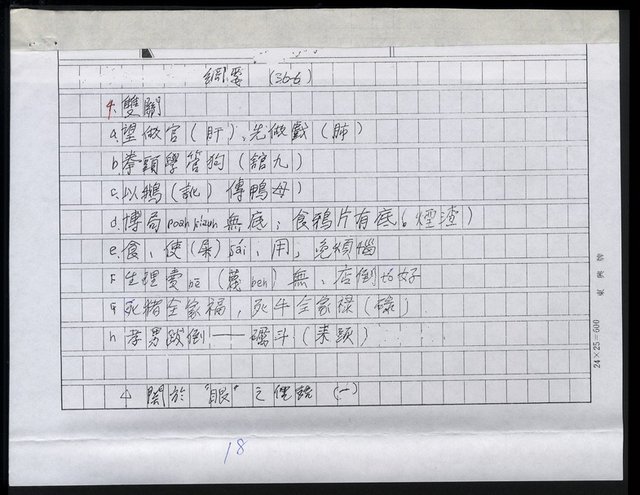 綱要 (36-6)
4. 雙關
a. 望做官(肝)、先做戲(肺)
b. 拳頭學管狗(館九)
c. 以鵝(訛)傳鴨母)
d. 博局 poah 無底；食鴉片有底(煙渣)
e. 食、使 sái、用，免煩惱
F 生理賣 bē (beh) 無、店倒好
G 死豬全家福，死牛全家祿(碌)
h 孝男跋倒——斗(頭)
關於"眼"之俚諺 (一)
18
24×25=600